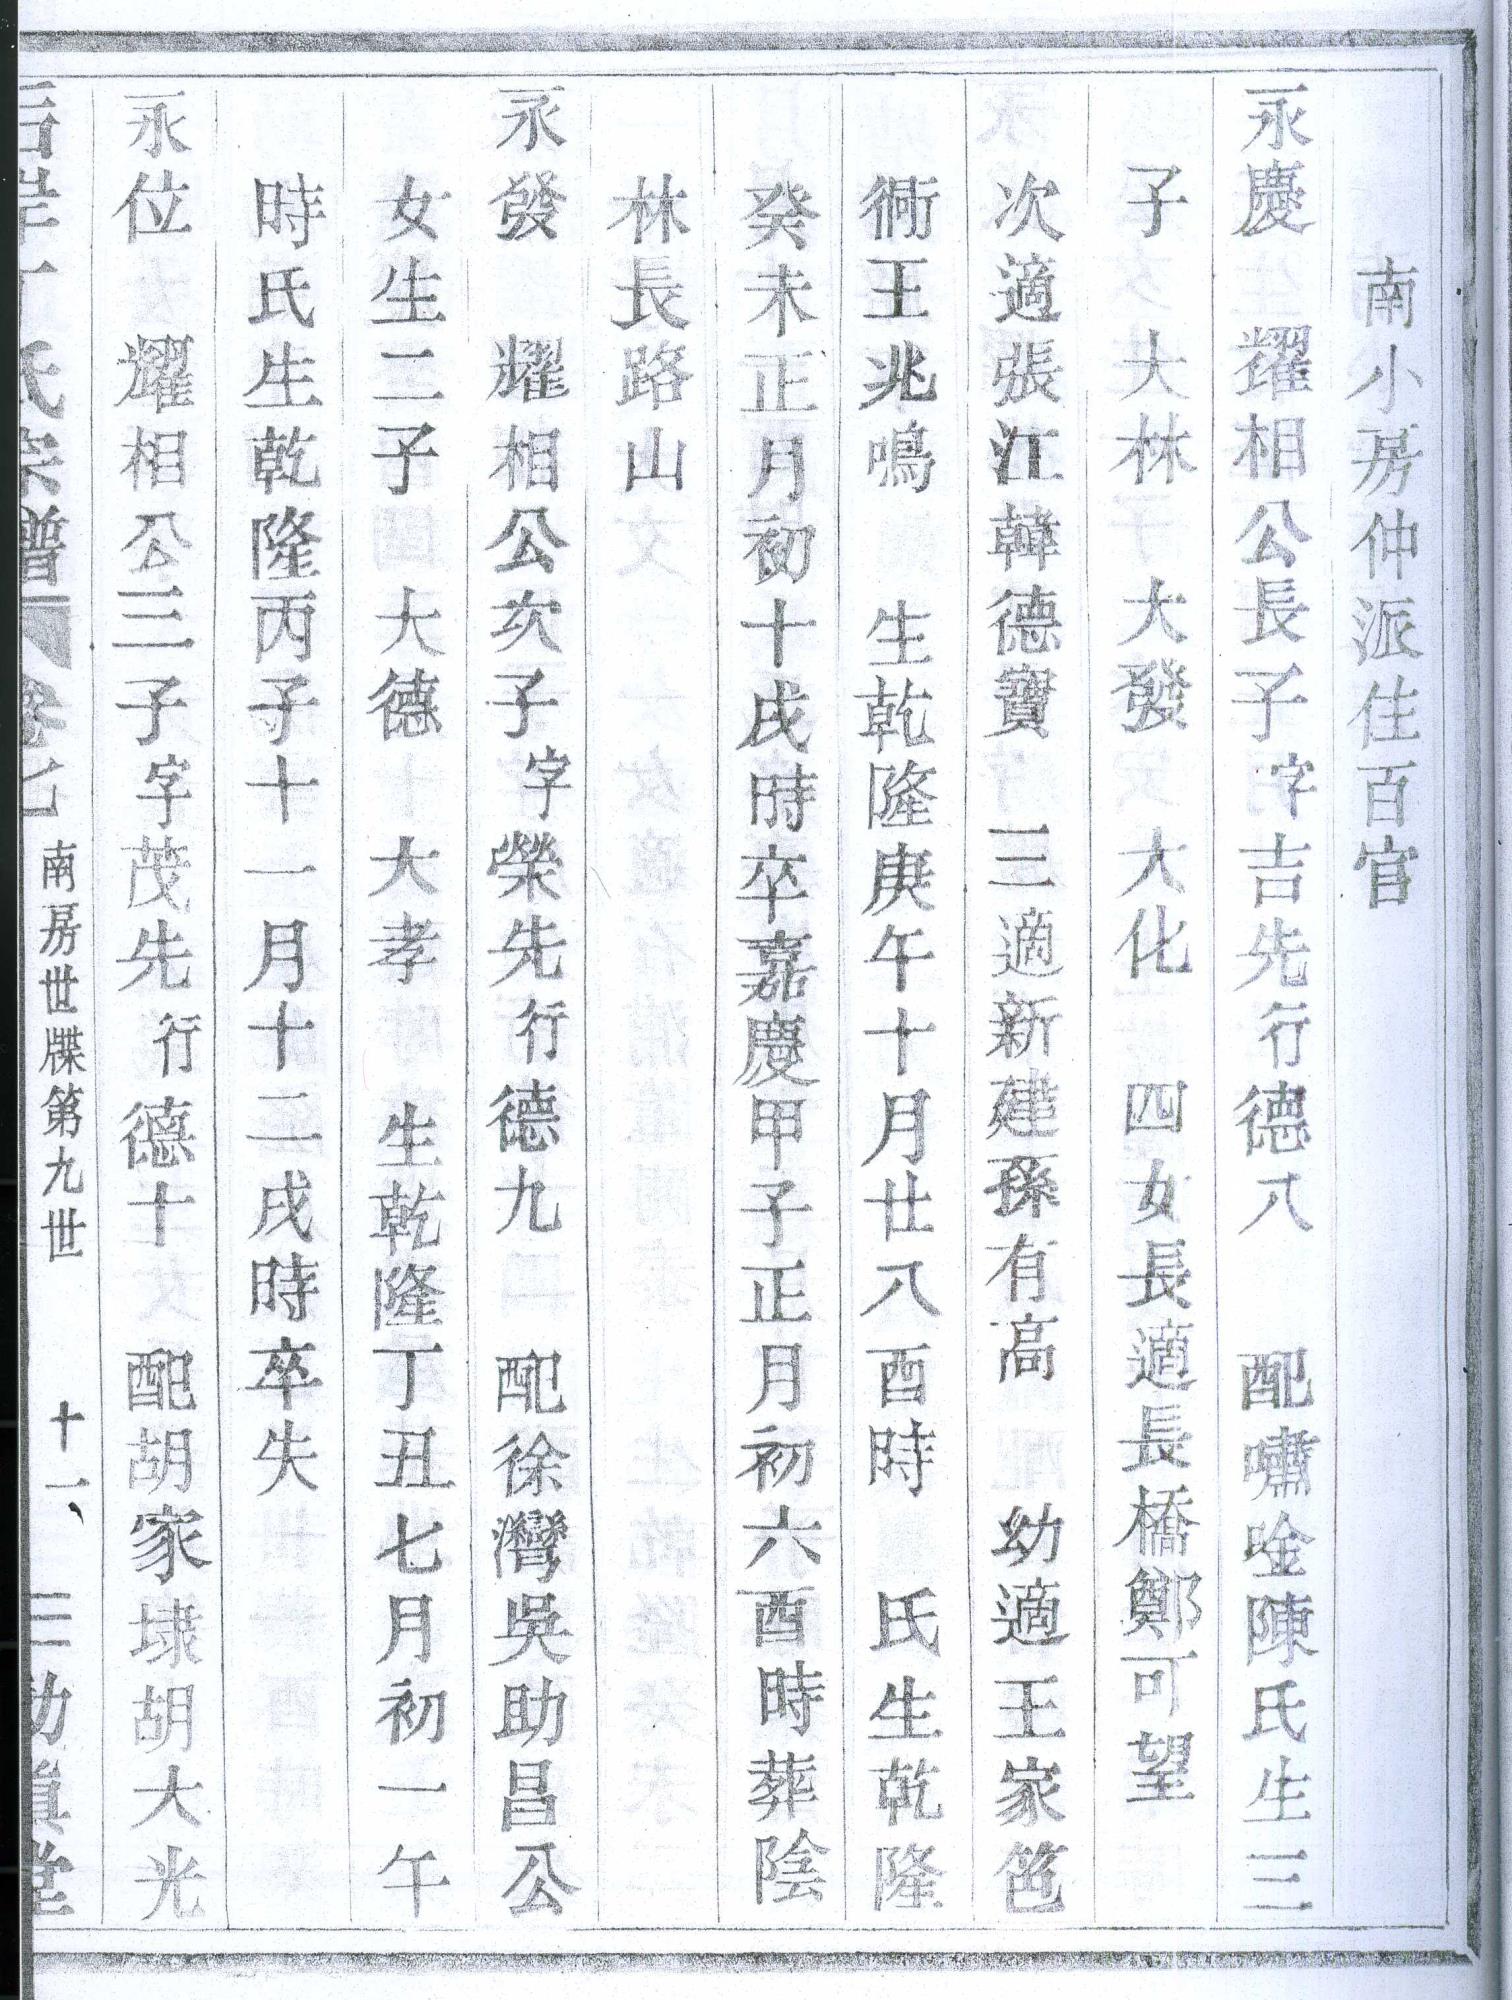 南小房仲派住百官
永慶 耀相公長子字吉先行德八 配嘯唫陳氏生三
子 大林 大發 大化 四女長適長橋鄭可望
次適張江韓德寶 三適新建孫有高 幼適王家笆
衕王兆鳴 生乾隆庚午十月廿八酉時 氏生乾隆
癸未正月初十戌時卒嘉慶甲子正月初六酉時葬陰
林長路山
永發 耀相公次子字榮先行德九 配徐灣吳助昌公
女生二子 大德 大孝 生乾隆丁丑七月初一午
時氏生乾隆丙子十一月十二戌時卒失
永位 耀相公三子字茂先行德十 配胡家埭胡大光
氏宗譜 卷七 南房世牒第九世 十一